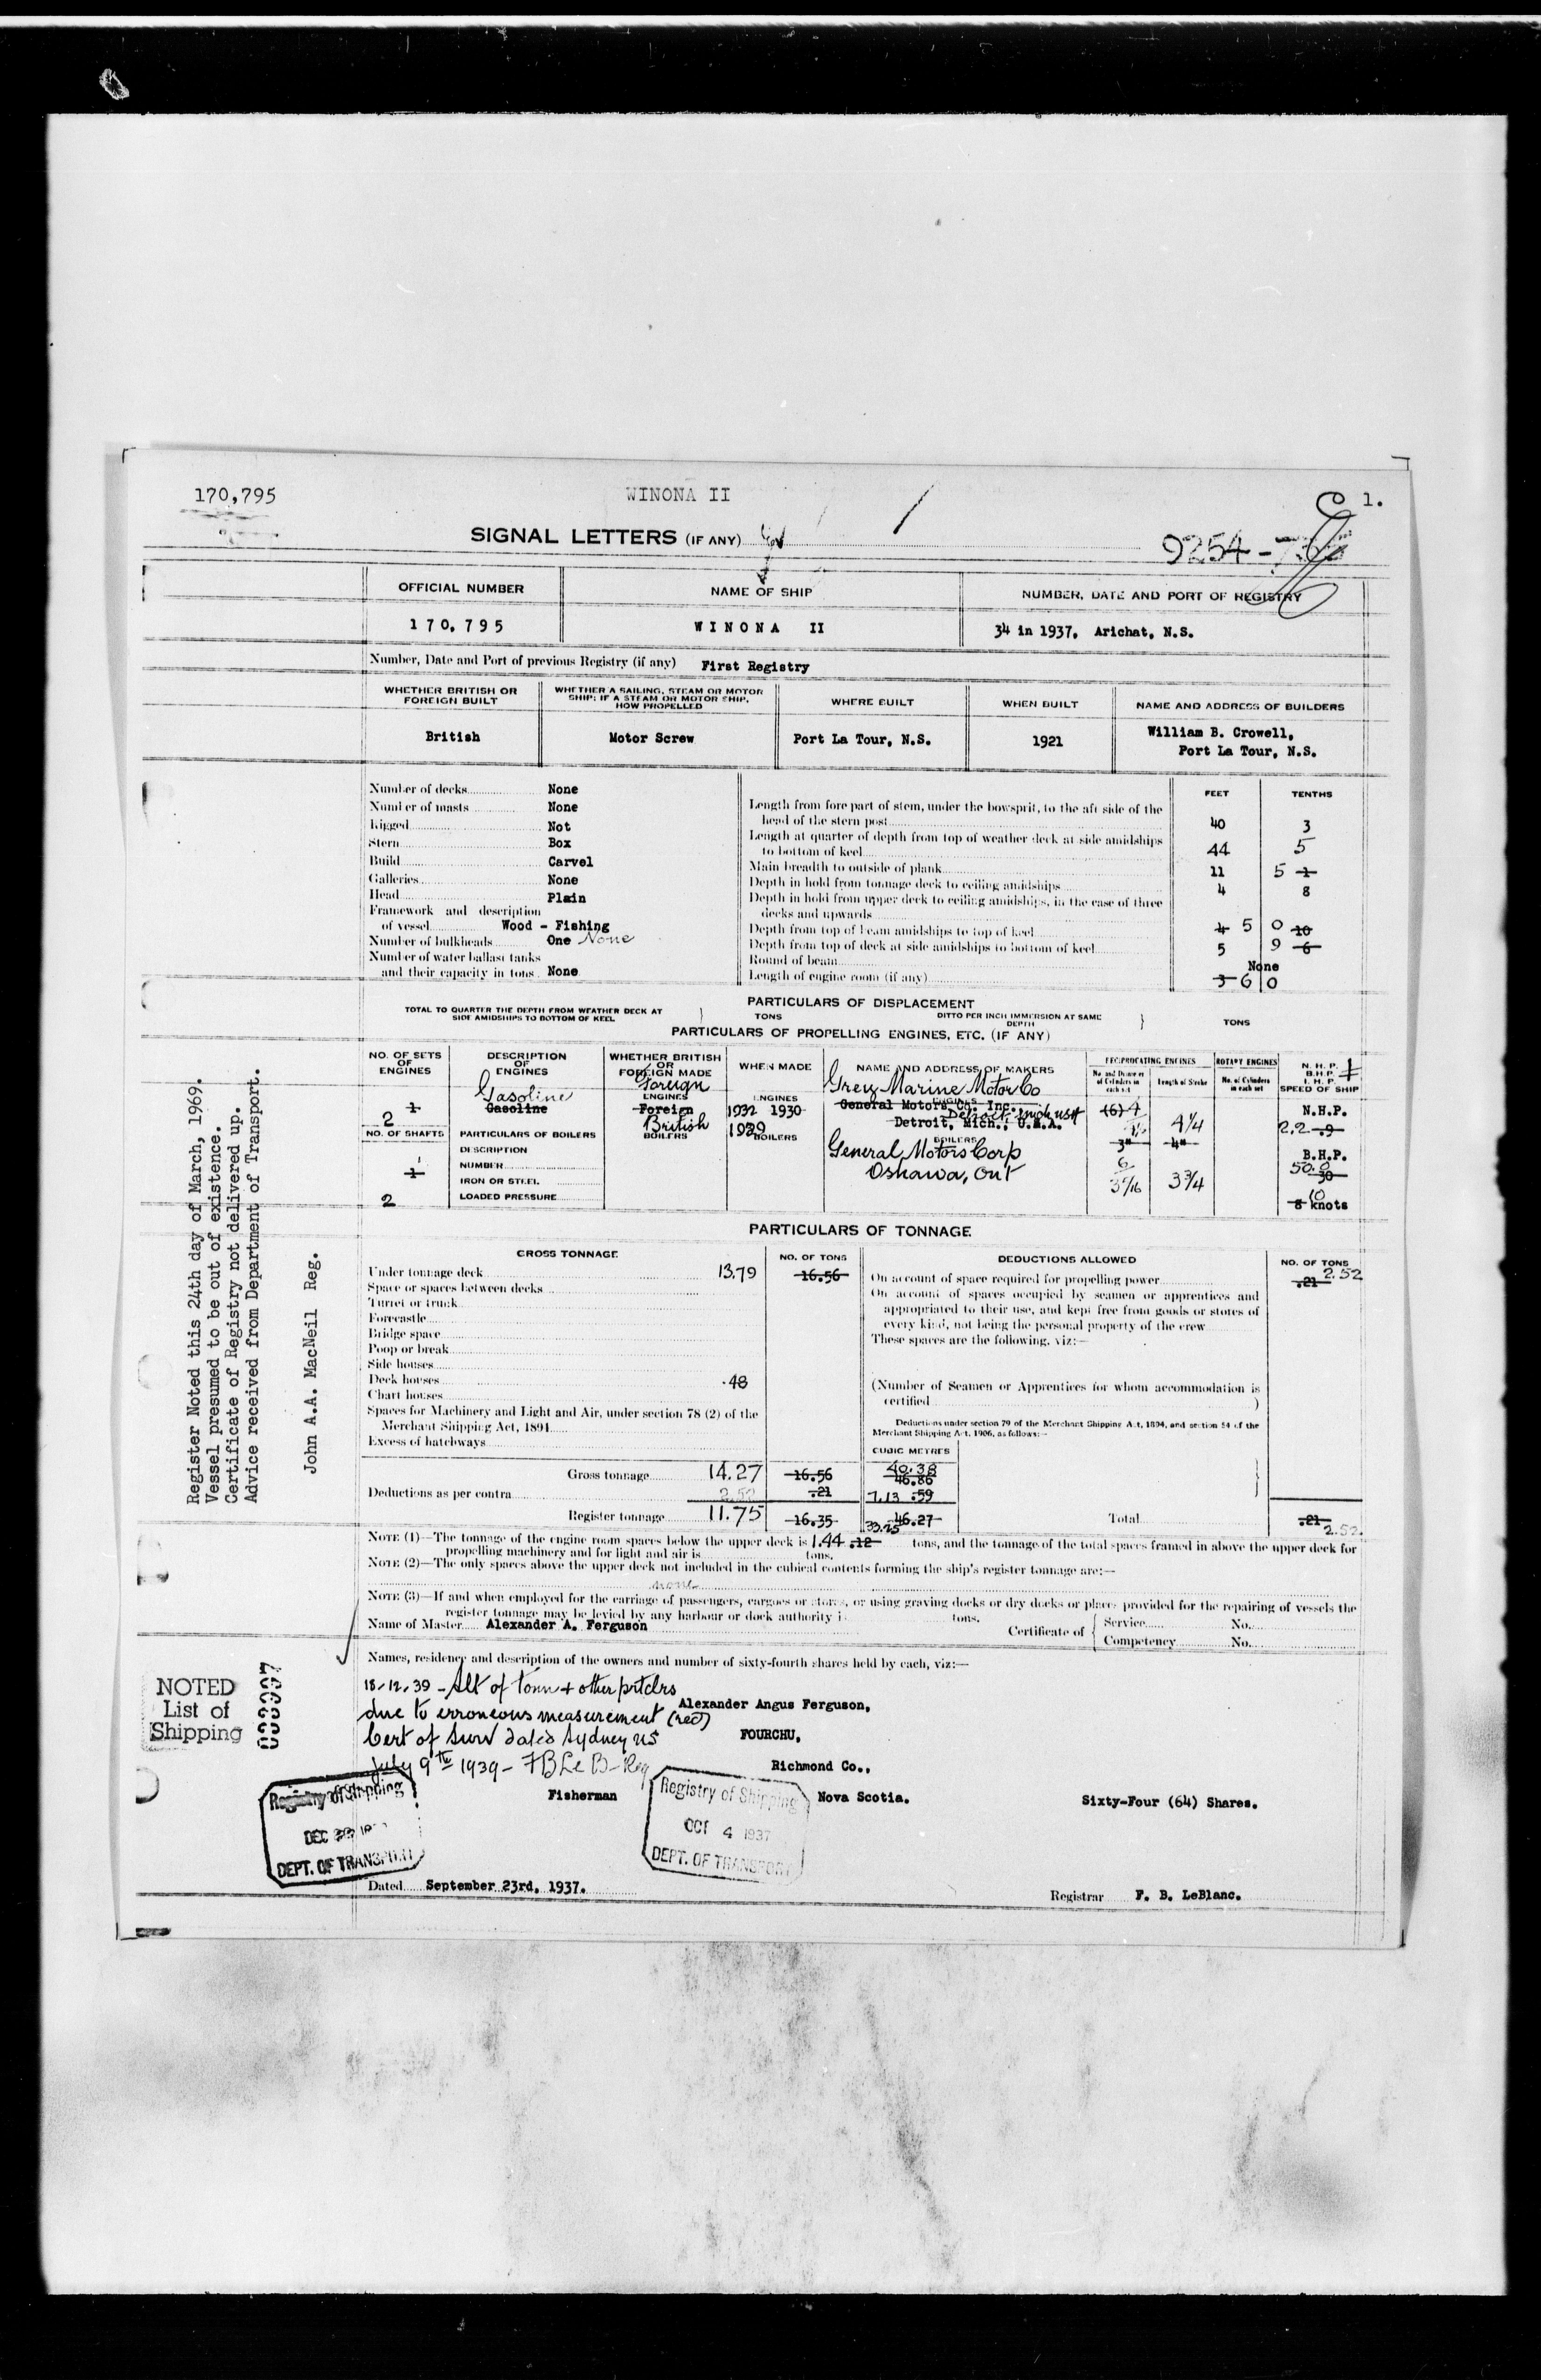 170,795
WINONA II
1.
SIGNAL LETTERS (IF ANY)
9254-
OFFICIAL NUMBER
NAME OF SHIP
NUMBER, DATE AND PORT OF REGISTRY
170,795
WINONA II
34 in 1937, Arichat, N.S.
Number, Date and Port of previous Registry (if any) First Registry
WHETHER BRITISH OR FOREIGN BUILT
WHETHER A SAILING, STEAM OR MOTOR SHIP; IF A STEAM OR MOTOR SHIP, HOW PROPELLED
WHERE BUILT
WHEN BUILT
NAME AND ADDRESS OF BUILDERS
British
Motor Screw
Port La Tour, N.S.
1921
William B. Crowell,
Port La Tour, N.S.
Number of decks None
Number of masts None
Rigged Not
Stern Box
Build Carvel
Galleries None
Head Plain
Framework and description
of vessel Wood - Fishing
Number of bulkheads One None
Number of water ballast tanks
and their capacity in tons None
FEET TENTHS
Length from fore part of stem, under the bowsprit, to the aft side of the
head of the stern post 40 3
Length at quarter of depth from top of weather deck at side amidships
to bottom of keel 44 5
Main breadth to outside of plank 11 5 1
Depth in hold from tonnage deck to ceiling amidships 4 8
Depth in hold from upper deck to ceiling amidships, in the case of three
decks and upwards
Depth from top of beam amidships to top of keel 4 5 0 10
Depth from top of deck at side amidships to bottom of keel 5 9 6
Round of beam None
Length of engine room (if any) 3 6 0
PARTICULARS OF DISPLACEMENT
TOTAL TO QUARTER THE DEPTH FROM WEATHER DECK AT SIDE AMIDSHIPS TO BOTTOM OF KEEL
TONS
DITTO PER INCH IMMERSION AT SAME DEPTH
TONS
PARTICULARS OF PROPELLING ENGINES, ETC. (IF ANY)
NO. OF SETS OF ENGINES
DESCRIPTION OF ENGINES
WHETHER BRITISH OR FOREIGN MADE
WHEN MADE
NAME AND ADDRESS OF MAKERS
RECIPROCATING ENGINES
ROTARY ENGINES
No. and Diameter of Cylinders in each set
Length of Stroke
No. of Cylinders in each set
N. H. P.
B. H. P.
I. H. P.
SPEED OF SHIP
1 2
Gasoline
Gasoline
Foreign
ENGINES
Foreign
British
BOILERS
ENGINES
1932 1930
1939
BOILERS
Grey Marine Motor Co
ENGINES
General Motors Co. Inc.
Detroit, Mich USA
Detroit, Mich., U.S.A.
BOILERS
General Motors Corp
Oshawa, Ont
(6) 4
3"
6
3 5/16
4 1/4
4"
3 3/4
N.H.P.
2.2 .9
B.H.P.
50.0
30
10
8 knots
NO. OF SHAFTS
1
2
PARTICULARS OF BOILERS
DESCRIPTION
NUMBER
IRON OR STEEL
LOADED PRESSURE
PARTICULARS OF TONNAGE
GROSS TONNAGE
NO. OF TONS
DEDUCTIONS ALLOWED
NO. OF TONS
Under tonnage deck 13.79 16.56
Space or spaces between decks
Turret or trunk
Forecastle
Bridge space
Poop or break
Side houses
Deck houses .48
Chart houses
Spaces for Machinery and Light and Air, under section 78 (2) of the
Merchant Shipping Act, 1894
Excess of hatchways
Gross tonnage 14.27 16.56
Deductions as per contra 2.52 .21
Register tonnage 11.75 16.35
On account of space required for propelling power .21 2.52
On account of spaces occupied by seamen or apprentices and
appropriated to their use, and kept free from goods or stores of
every kind, not being the personal property of the crew
These spaces are the following, viz:—
(Number of Seamen or Apprentices for whom accommodation is
certified )
Deductions under section 79 of the Merchant Shipping Act, 1894, and section 54 of the
Merchant Shipping Act, 1906, as follows:—
CUBIC METRES
40.38
46.86
7.13 .59
33.25 46.27
Total .21 2.52
NOTE (1)—The tonnage of the engine room spaces below the upper deck is 1.44 .12 tons, and the tonnage of the total spaces framed in above the upper deck for
propelling machinery and for light and air is tons.
NOTE (2)—The only spaces above the upper deck not included in the cubical contents forming the ship's register tonnage are:—
none
NOTE (3)—If and when employed for the carriage of passengers, cargoes or stores, or using graving docks or dry docks or places provided for the repairing of vessels the
register tonnage may be levied by any harbour or dock authority is tons.
Name of Master Alexander A. Ferguson
Certificate of
Service No.
Competency No.
Names, residence and description of the owners and number of sixty-fourth shares held by each, viz:—
18-12-39 - Alt of tonn + other prtclrs
due to erroneous measurement (rect)
Cert of Surv dated Sydney NS
July 9th 1939 - F B Le B - Reg
Alexander Angus Ferguson,
FOURCHU,
Richmond Co.,
Fisherman
Nova Scotia.
Sixty-Four (64) Shares.
Registry of Shipping
DEC
DEPT. OF TRANSPORT
Registry of Shipping
OCT 4 1937
DEPT. OF TRANSPORT
Dated September 23rd, 1937.
Registrar F. B. LeBlanc.
Register Noted this 24th day of March, 1969.
Vessel presumed to be out of existence.
Certificate of Registry not delivered up.
Advice received from Department of Transport.
John A.A. MacNeil Reg.
NOTED
List of
Shipping